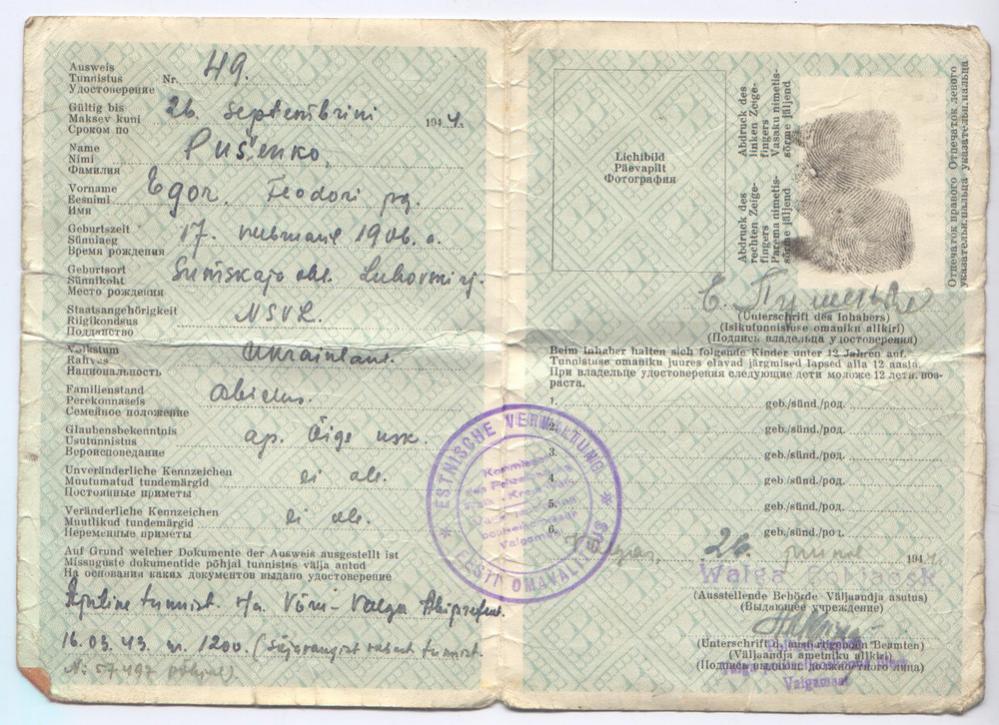 Ausweis
Tunnistus Nr. 49.
Удостоверение
Gültig bis
Maksev kuni 26 septembrini 1944.
Сроком по
Name
Nimi Pušenko,
Фамилия
Vorname
Eesnimi Egor, Feodori pg.
Имя
Geburtszeit
Sünniaeg 17. 1906. a.
Время рождения
Geburtsort
Sünnikoht Sumskaja obl.
Место рождения
Staatsangehörigkeit
Riigikondsus NSVL.
Подданство
Volkstum
Rahvus Ukrainlane.
Национальность
Familienstand
Perekonnaseis abielus.
Семейное положение
Glaubensbekenntnis
Usutunnistus ap. õige usk.
Вероисповедание
Unveränderliche Kennzeichen
Muutumatud tundemärgid ei ole.
Постоянные приметы
Veränderliche Kennzeichen
Muutlikud tundemärgid ei ole.
Переменные приметы
Auf Grund welcher Dokumente der Ausweis ausgestellt ist
Missuguste dokumentide põhjal tunnistus välja antud
На основании каких документов выдано удостоверение
Ajutine tunnist. v/a. Võru-Valga
16.03.43. nr. 1200. (sõjavangist vabast. tunnist.
№ 57497 põhjal).
Lichtbild
Päevapilt
Фотография
Abdruck des
linken Zeige-
fingers
Vasaku nimetis-
sõrme jäljend
Отпечаток левого
указательн. пальца
Abdruck des
rechten Zeige-
fingers
Parema nimetis-
sõrme jäljend
Отпечаток правого
указательн. пальца
(Unterschrift des Inhabers)
(Isikutunnistuse omaniku allkiri)
(Подпись владельца удостоверения)
Beim Inhaber halten sich folgende Kinder unter 12 Jahren auf.
Tunnistuse omaniku juures elavad järgmised lapsed alla 12 aasta.
При владельце удостоверения следующие дети моложе 12 летн. воз-
раста.
1. geb./sünd./род.
2. geb./sünd./род.
3. geb./sünd./род.
4. geb./sünd./род.
5. geb./sünd./род.
6. geb./sünd./род.
ESTNISCHE VERWALTUNG
EESTI OMAVALITSUS
Valgas, 26. juunil 194
(Ausstellende Behörde Väljaandja asutus)
(Выдающее учреждение)
(Unterschrift d. ausfertigenden Beamten)
(Väljaandja ametniku allkiri)
(Подпись выдающ. должностного лица)
Valgamaal